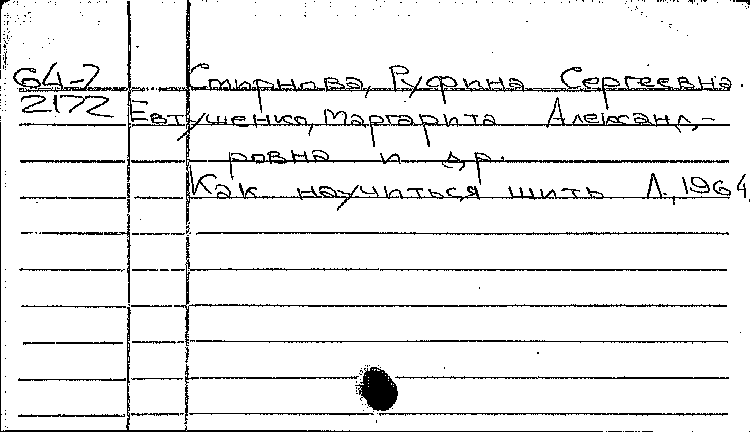 64-7 Смирнова, Руфина Сергеевна.
2172 Евтушенко, Маргарита Александ-
ровна и др.
Как научиться шить Л., 1964